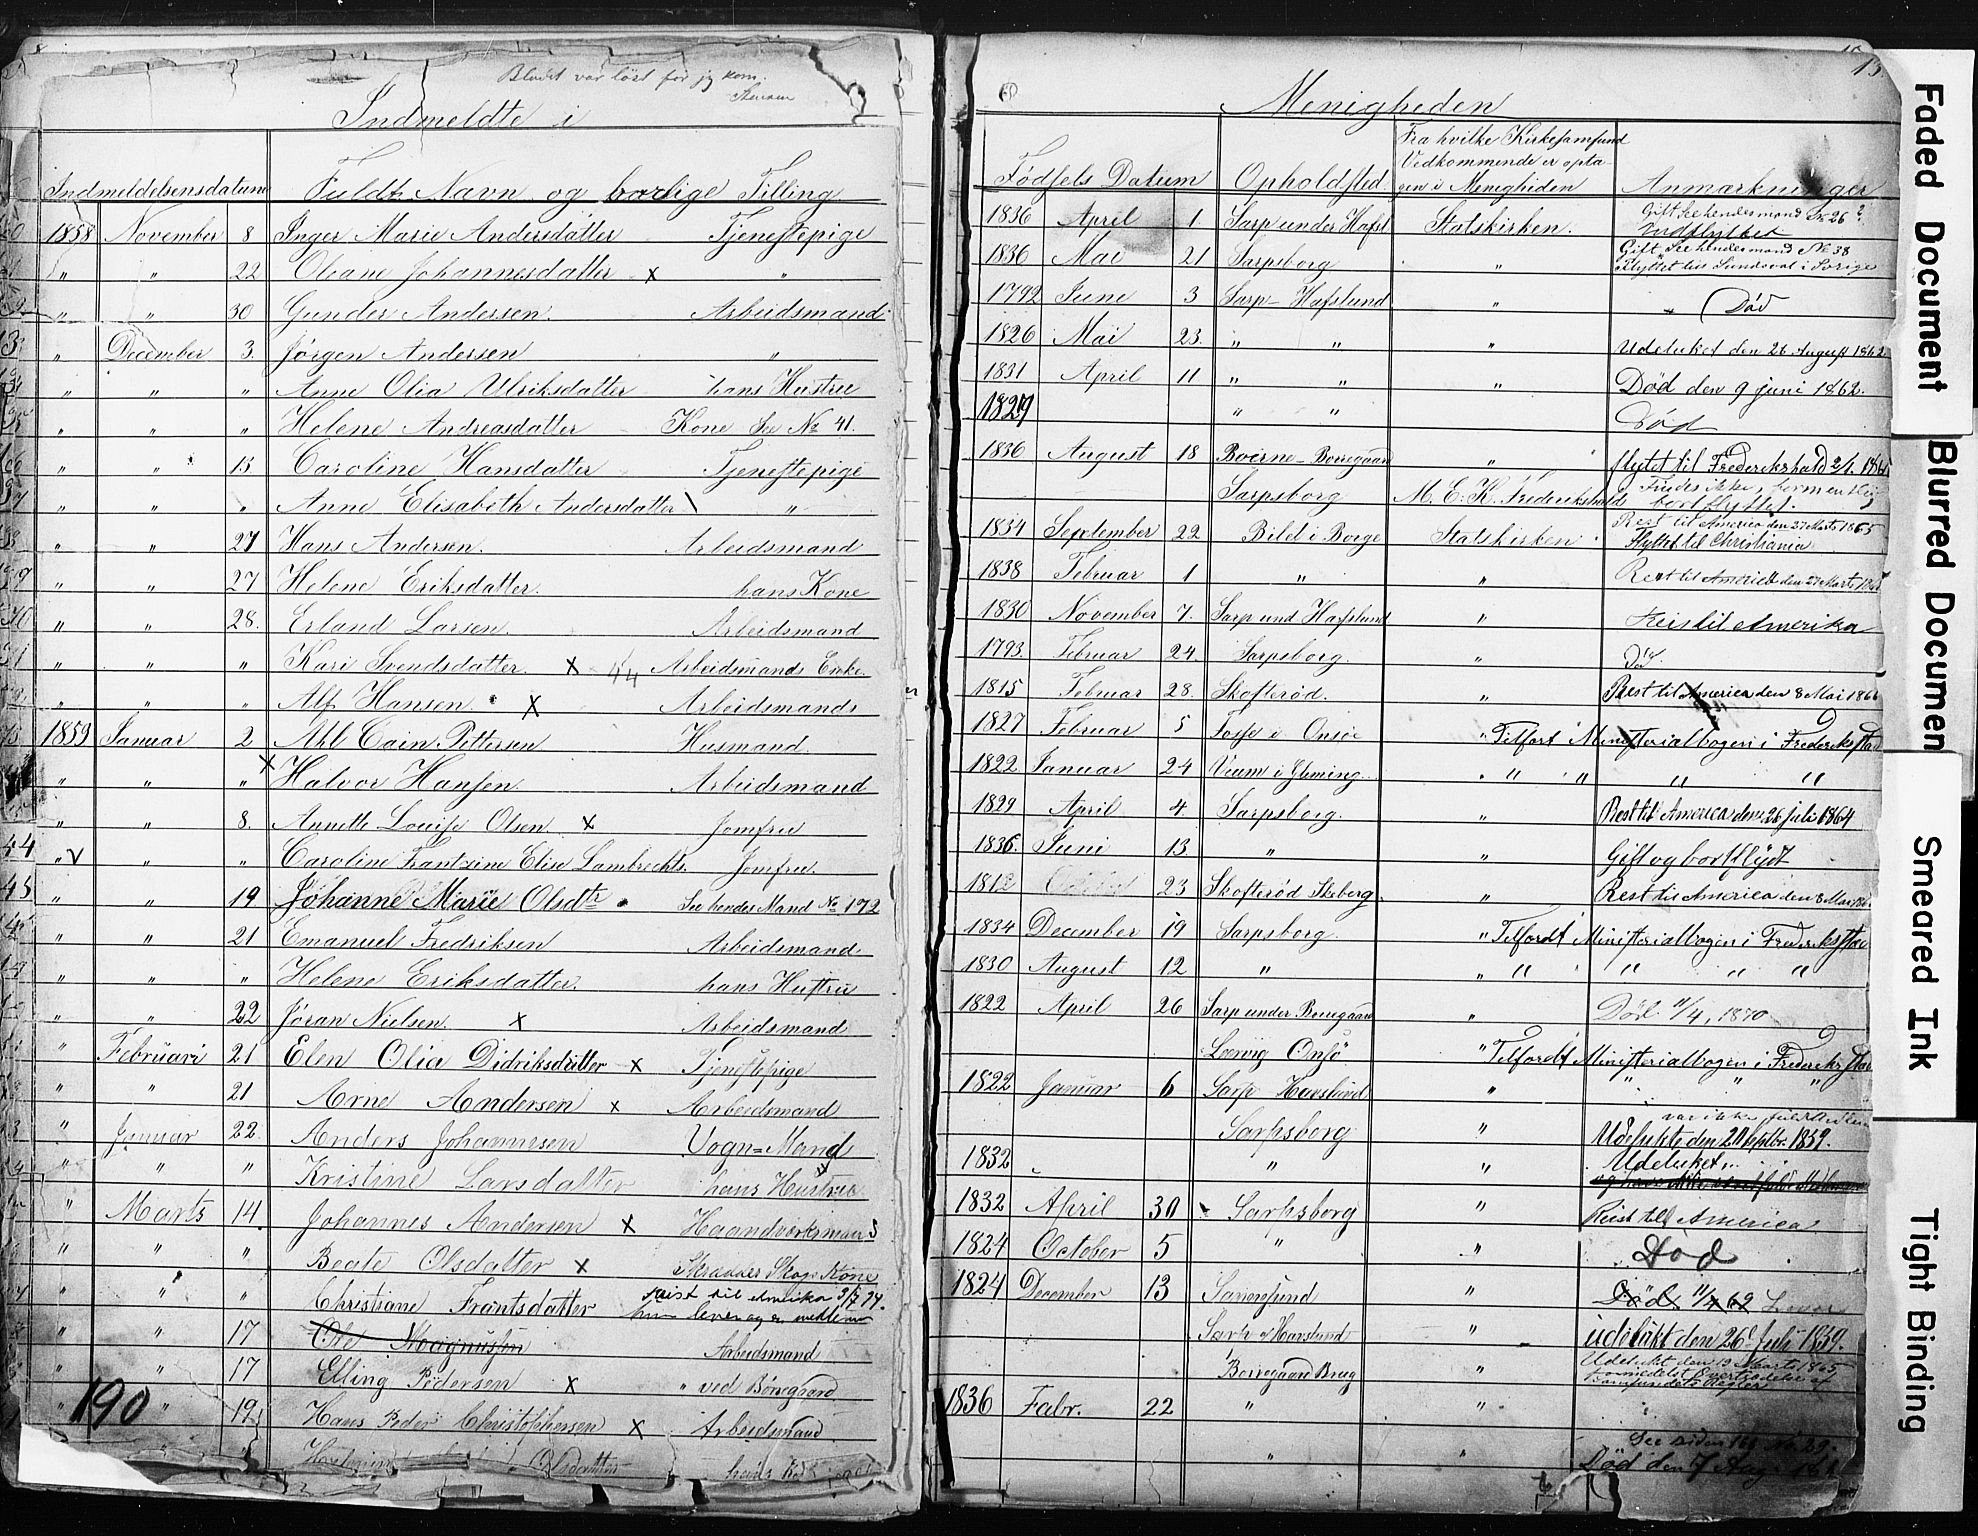 Bladet var löst før jg kom.
Indmeldte i
Indmeldelsensdatum Fuldt Navn og borlige Stilling
1858 November 8 Inger Marie Andersdatter Tjenestepige
" " 22 Oleane Johannesdatter x "
" " 30 Gunder Andersen. Arbeidsmand
" December 3. Jørgen Andersen "
" " " Anne Olia Ulriksdatter hans Hustru
" " " Helene Andreasdatter Kone See No 41.
" " 13 Caroline Hansdatter Tjenestepige
" " " Anne Elisabeth Andersdatter "
" " 27 Hans Andersen. Arbeidsmand
" " 27 Helene Eriksdatter. hans Kone
" " 28. Erland Larsen. Arbeidsmand
" " " Kari Svendsdatter. x 44 Arbeidsmands Enke.
" " " Alf Hansen x Arbeidsmands
1859 Januar 2 Pettersen Husmand
" " " x Halvor Hansen Arbeidsmand
" " 8. Annette Louise Olsen. x Jomfru
44 " v " " Caroline Frantzine Elise Lambrechts. Jomfru.
45 " " 19 Johanne Marie Olsdtr See hendes Mand No 172
" " 21 Emanuel Fredriksen Arbeidsmand
" " " Helene Eriksdatter. hans Hustru
" " 22 Jøran Nielsen. x Arbeidsmand
" Februari 21 Elen Olia Didriksdatter x Tjenestepige
" " 21 Arne Andersen x Arbeidsmand
" Januar 22 Anders Johannesen Vogn=Mand
" " " Kristine Larsdatter hans Hustrue
" Marts 14 Johannes Andersen x Haandverksmand
" " " Beate Olsdatter x Skrædder Kone
" " Christiane Frantsdatter reist til Amerika
" " 17 Ole Magnussen Arbeidsmand
" " 17 Elling Pedersen x " ved Borregaard
190 " 19 Hans Peder Christophersen x Arbeidsmand
Olsdatter hans
Menigheden
Fra hvilke Kirkesamfund
Vedkommende er opta-
Fødsels Datum Opholdsted. gen i Menigheden Anmærkninger
1836 April 1 Sarp under Hafsl Statskirken. Gift See hendes mand No 26
udflyttet
1836 Mai 21 Sarpsborg " Gift See hendes mand No 38
Flyttet till Sundsval i Sverige
1792 June 3 Sarp-Hafslund " Død
1826 Mai 23. " " " Udeluket den 26 August 1862
1831 April 11 " " " Død den 9 juni 1862.
1829 " " Død
1836 August 18 Borregaard " flytet til Frederikshald
Sarpsborg M. E. K. Frederikshald Findes ikke, formentlig
bortflyttet.
1834 September 22 Bild i Borge Statskirken Rest til America den 27 Marts 1865
Flyttet til Christiania
1838 Februar 1 " " Rest til America den 27 Marts
1830 November 7. Sarp und Hafslund " Reis til Amerika
1793. Februar 24. Sarpsborg. " Død.
1815 Februar 28. Skofterød. " Rest til America den 8 Mai 1866
1827 Februar 5 i Onsøe " Tilført i Ministerialbogen i Frederikstad
1822 Januar 24 Veum i Glæming. " " " " "
1829 April 4. Sarpsborg. " Rest til America den 26 juli 1864
1836. Juni 13. " " Gift og bortflydt
1812 23 Skofterød Skeberg. " Rest til America den 8 Mai
1834 December 19 Sarpsborg. " Telfordt i Ministerialbogen i Frederikstad
1830 August 12 " " " " " "
1822 April 26 Sarp under Borregaard " Død. 11/4, 1870
Leervig Onsö " Telfordt i Ministerialbogen i Frederikstad
1822 Januar 6 Sarp Havslund " " " "
var ikke
Sarpsborg " Udelukte den 20 Septbr. 1859.
1832 " " Udeluket
1832 April 30 Sarpsborg " Reist till America
1824 October 5 " " Død
1824 December 13 Sannesund " Död 11/4 69 Lever
Sarp Havslund " udelukt den 26 Juli 1859.
Borregaard Brug " Udelukt den 12 Marts 1865
formedelst Overtrædelse af
Samfundets Regler
1836 Febr. 22 " "
See siden 169 No. 29.
" " Død den 7 Aug.
Faded Document
Blurred Documen
Smeared Ink
Tight Binding